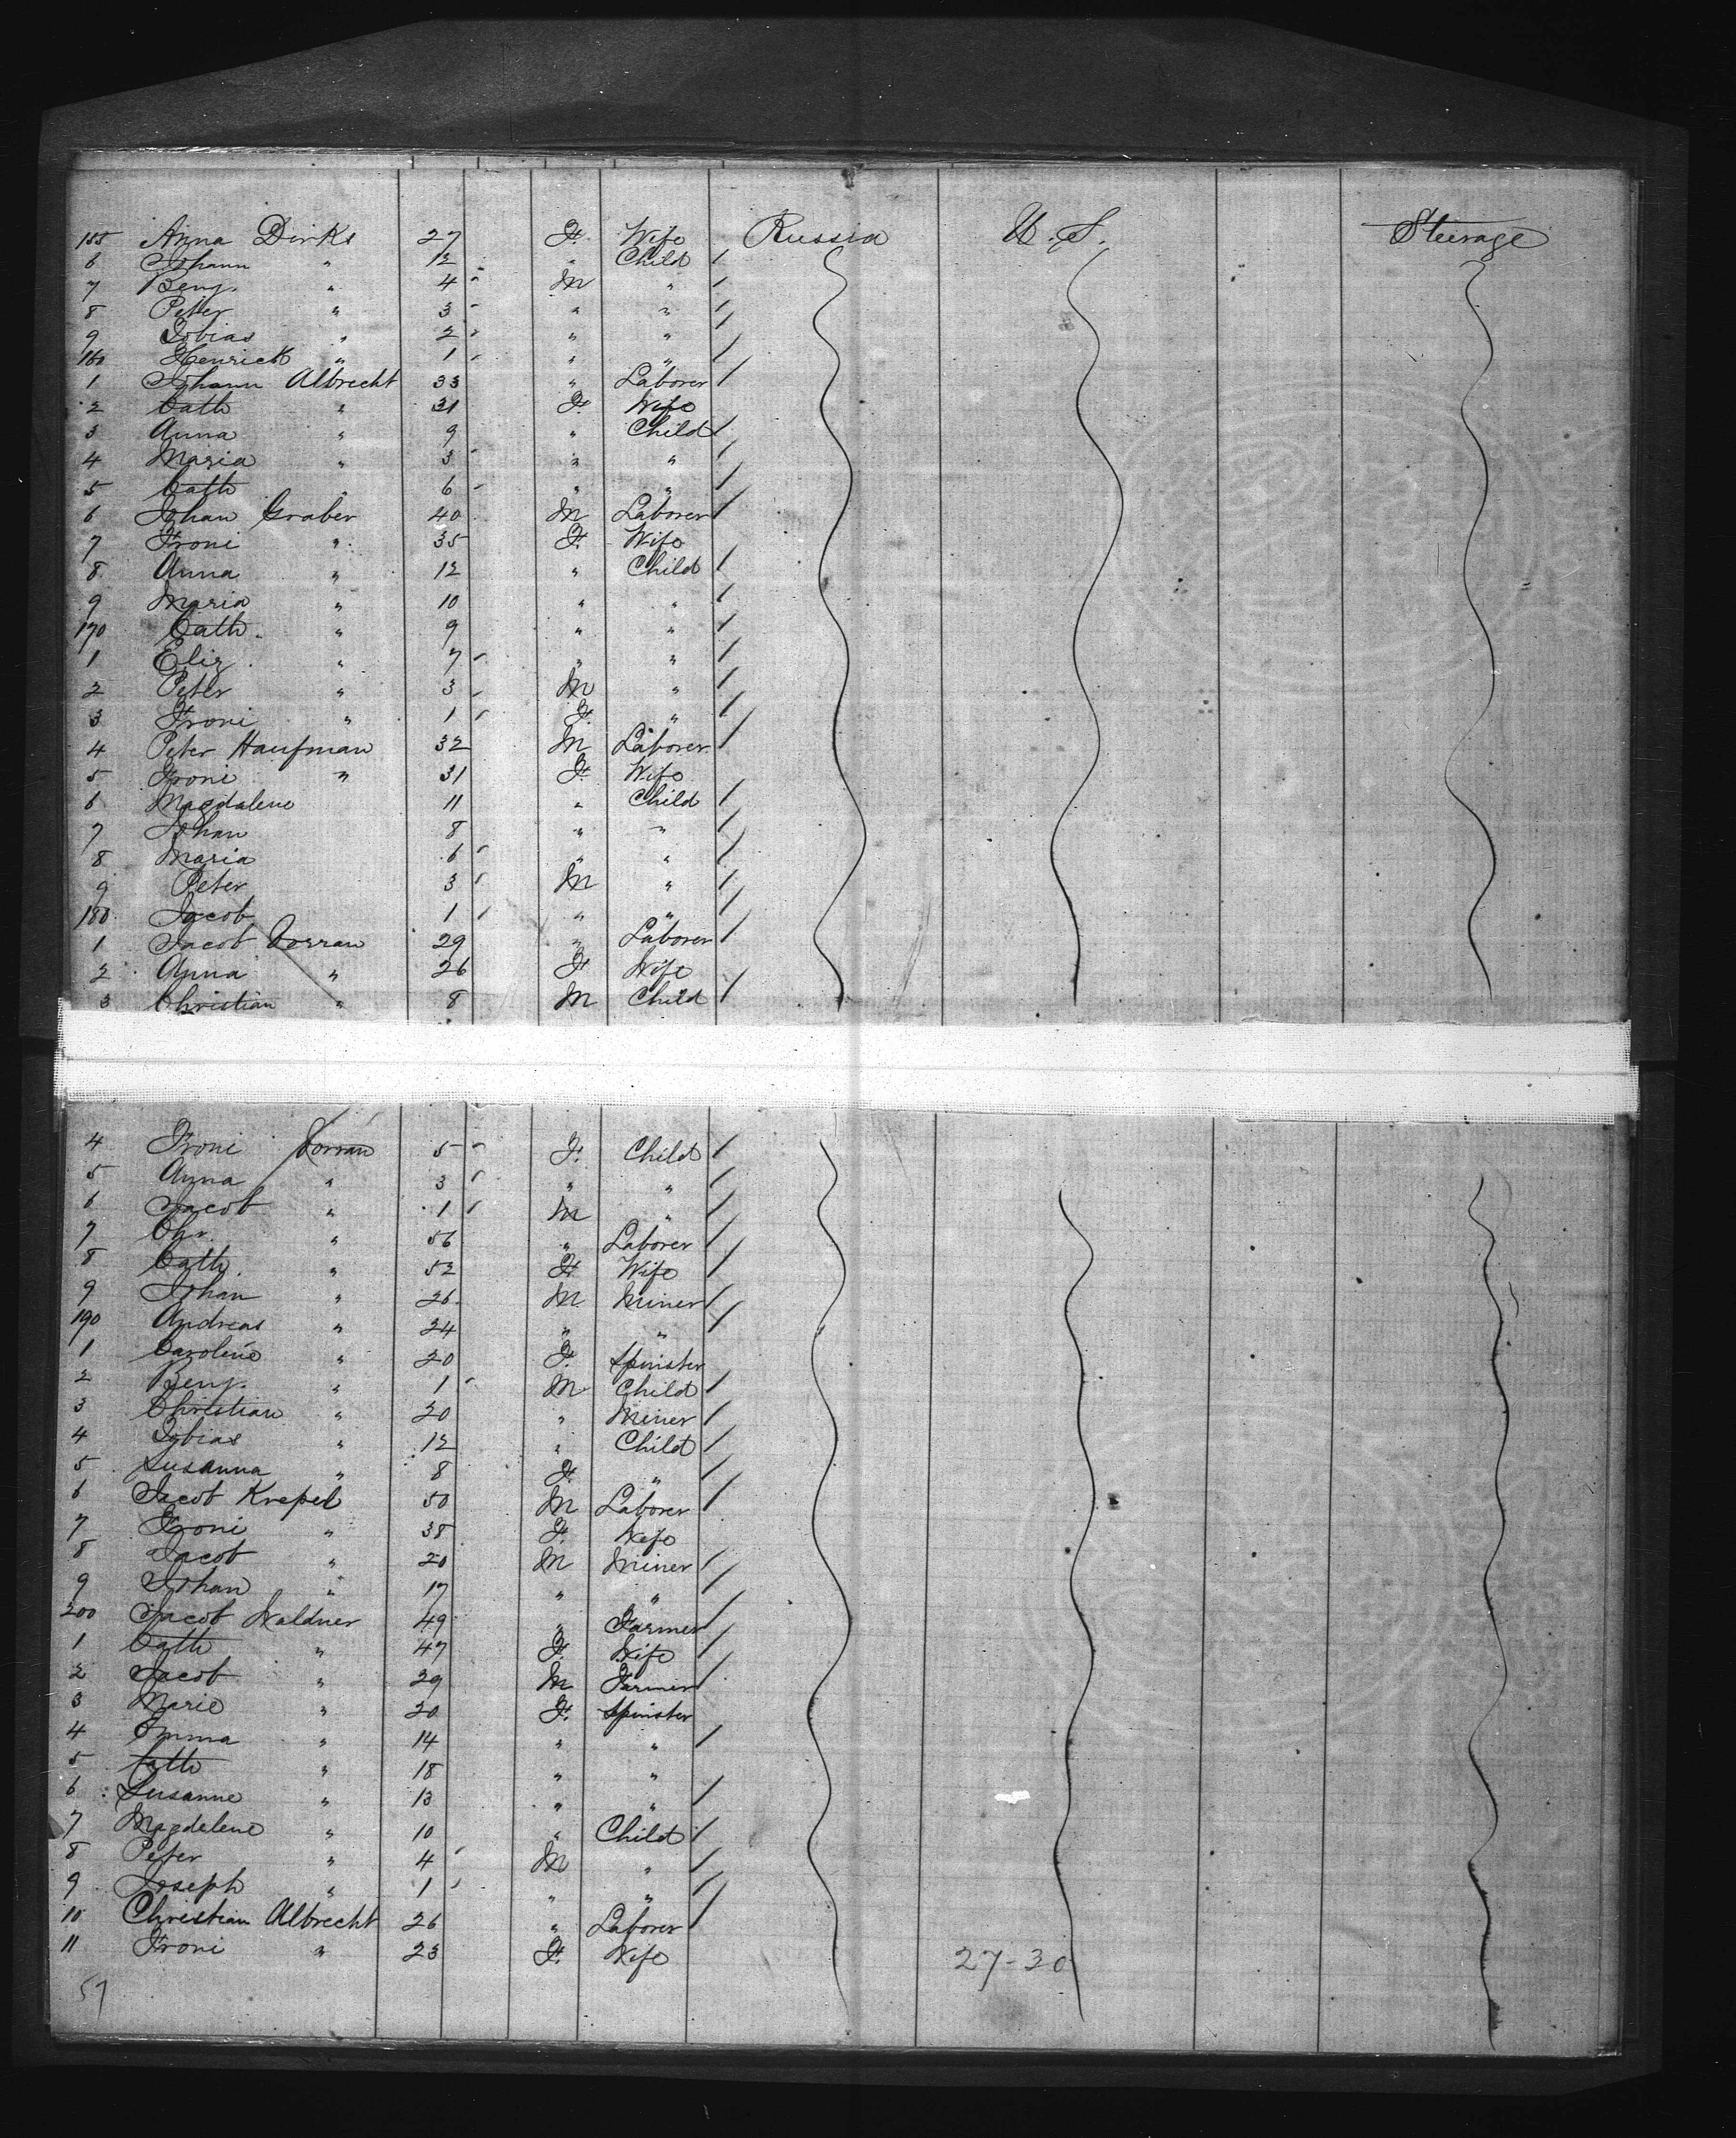 155 Anna Dirks 27 F. Wife Russia U.S. Steerage
6 Johann " 12 " Child /
7 Benj. " 4 M " /
8 Peter " 3 " " /
9 Tobias " 2 " " /
160 Henrich " 1 " " /
1 Johann Albrecht 33 " Laborer /
2 Cath " 31 F. Wife
3 Anna " 9 " Child /
4 Maria " 3 " " /
5 Cath " 6 " " /
6 Johan Graber 40 M Laborer /
7 Froni " 35 F. Wife
8 Anna " 12 " Child /
9 Maria " 10 " " /
170 Cath. " 9 " " /
1 Eliz. " 7 " " /
2 Peter " 3 M " /
3 Froni " 1 F. " /
4 Peter Haufman 32 M Laborer /
5 Froni " 31 F. Wife
6 Magdalene 11 " Child /
7 Johan 8 " " /
8 Maria 6 " " /
9 Peter 3 M " /
180 Jacob 1 " " /
1 Jacob Gorran 29 " Laborer /
2 Anna " 26 F Wife
3 Christian " 8 M Child /
4 Froni Gorran 5 F. Child /
5 Anna " 3 " " /
6 Jacob " 1 M " /
7 Chr. " 56 " Laborer /
8 Cath. " 52 F Wife /
9 Johan " 26 M Miner /
190 Andreas " 24 " " /
1 Caroline " 20 F. Spinster
2 Benj. " 1 M Child /
3 Christian " 20 " Miner /
4 Tobias " 12 " Child /
5 Susanna " 8 F. " /
6 Jacob Krepel 50 M Laborer /
7 Froni " 38 F. Wife
8 Jacob " 20 M Miner /
9 Johan " 17 " " /
200 Jacob Waldner 49 " Farmer /
1 Cath " 47 F. Wife /
2 Jacob " 29 M Farmer /
3 Marie " 20 F. Spinster
4 Emma " 14 " " /
5 Cath " 18 " "
6 Susanne " 13 " " /
7 Magdelene " 10 " Child /
8 Peter " 4 M " /
9 Joseph " 1 " " /
10 Christian Albrecht 26 " Laborer /
11 Froni " 23 F. Wife
27-30
57